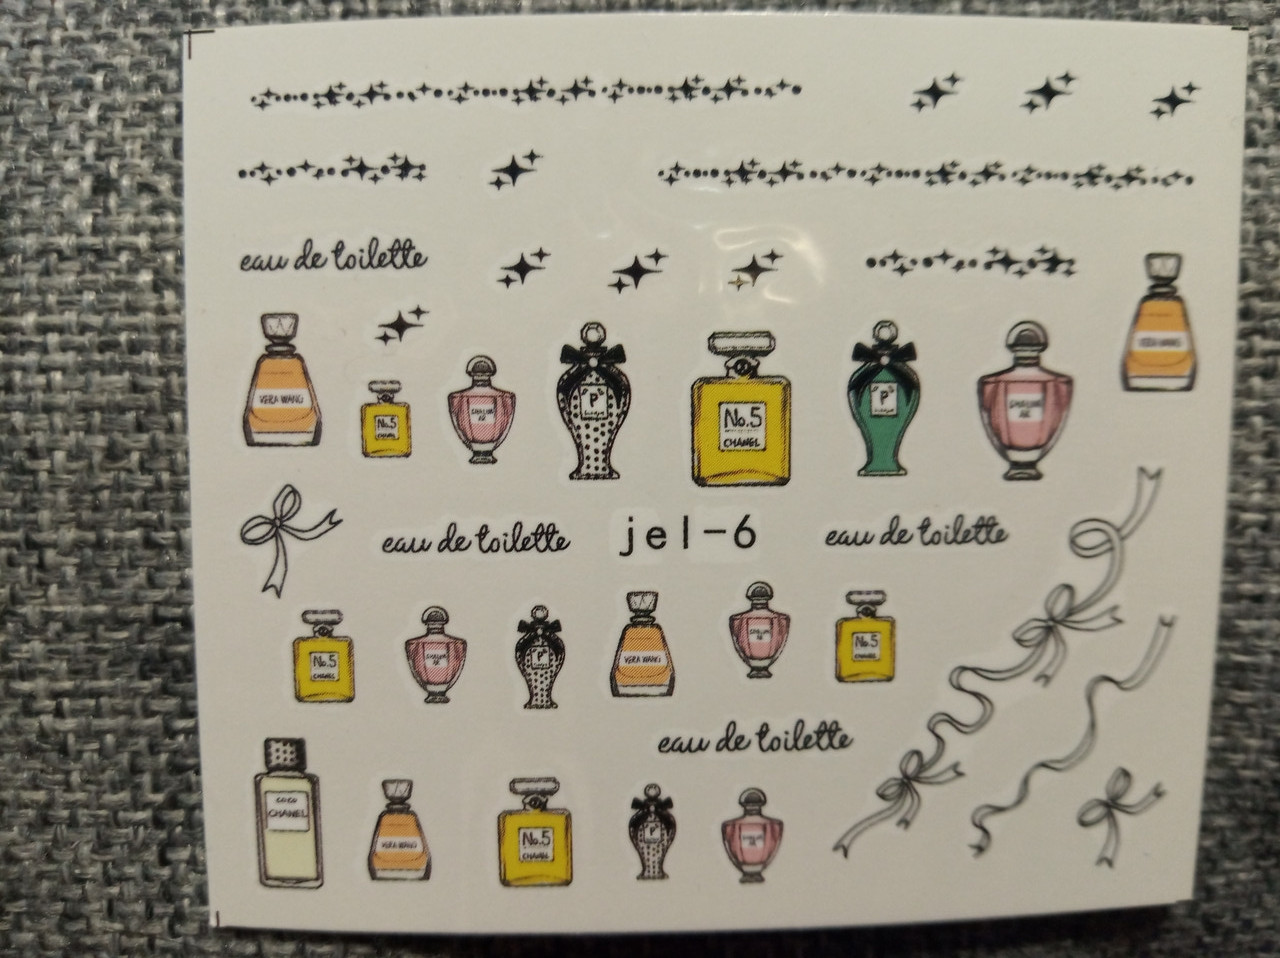 eau de toilette
VERA WANG
No.5
CHANEL
P
No.5
CHANEL
P
VERA WANG
eau de toilette
jel-6
eau de toilette
No.5
CHANEL
P
VERA WANG
No.5
eau de toilette
COCO
CHANEL
VERA WANG
No.5
CHANEL
P